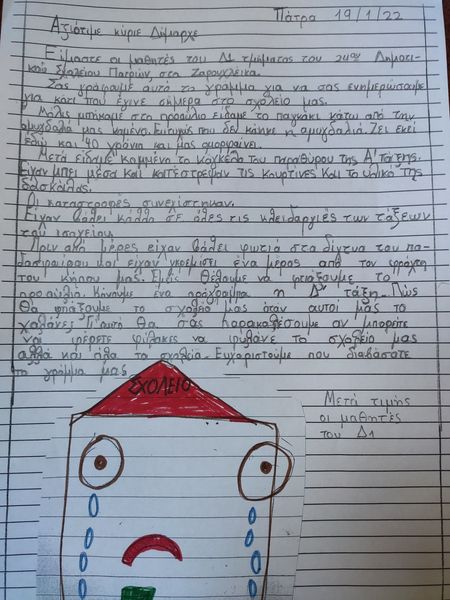 Πάτρα 19/1/22
Αξιότιμε κύριε Δήμαρχε
Είμαστε οι μαθητές του Δ1 τμήματος του 24ου Δημοτι-
κού Σχολείου Πατρών, στα Ζαρουχλέικα.
Σας γράφουμε αυτό το γράμμα για να σας ενημερώσουμε
για κάτι που έγινε σήμερα στο σχολείο μας.
Μόλις μπήκαμε στο προαύλιο είδαμε το παγκάκι κάτω από την
αμυγδαλιά μας καμένο. Ευτυχώς που δεν κάηκε η αμυγδαλιά. Ζει εκεί
εδώ και 40 χρόνια και μας ομορφαίνει.
Μετά είδαμε κομμένο το κάγκελο του παραθύρου της Α' τάξης.
Είχαν μπει μέσα και κατέστρεψαν τις κουρτίνες και το υλικό της
δασκάλας.
Οι καταστροφές συνεχίστηκαν.
Είχαν βάλει κόλλα σε όλες τις κλειδαριές των τάξεων
του ισογείου.
Πριν από μέρες είχαν βάλει φωτιά στα δίχτυα του πο-
δοσφαίρου και είχαν γκρεμίσει ένα μέρος από τον φράχτη
του κήπου μας. Εμείς θέλουμε να φτιάξουμε το
προαύλιο. Κάνουμε ένα πρόγραμμα η Δ' τάξη. Πώς
θα φτιάξουμε το σχολείο μας όταν αυτοί μας το
χαλάνε; Γι'αυτό θα σας παρακαλέσουμε αν μπορείτε
να φέρετε φύλακες να φυλάνε το σχολείο μας
αλλά και όλα τα σχολεία. Ευχαριστούμε που διαβάσατε
το γράμμα μας
Μετά τιμής
οι μαθητές
του Δ1
ΣΧΟΛΕΙΟ